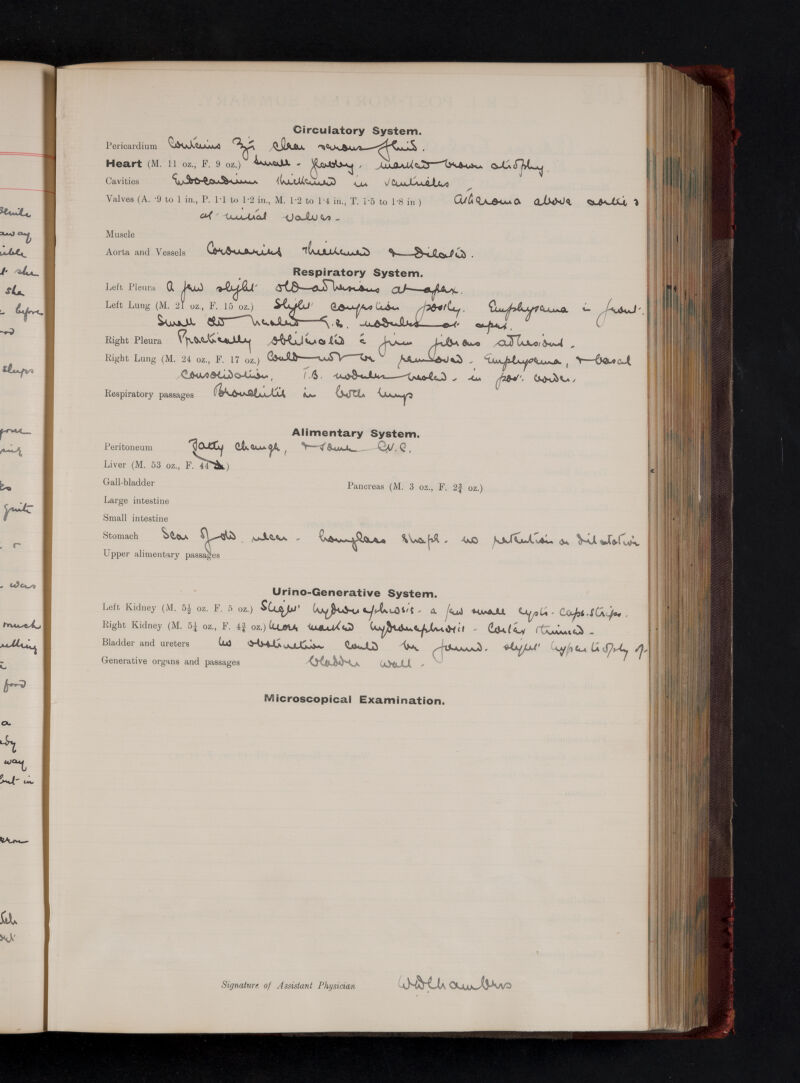 Circulatory System.
Pericardium Contains ℥ii clear serous fluid.
Heart (M. 11 oz., F. 9 oz.) Small - flabby - marked brown atrophy.
Cavities Endocardium thickened in ventricles.
Valves (A. ·9 to 1 in., P. 1·1 to 1·2 in., M. 1·2 to 1·4 in., T. 1·5 to 1·8 in) Atheroma above aortic &
at mitral valves -
Muscle
Aorta and Vessels Coronaries thickened & dilated.
Respiratory System.
Left Pleura A few slight old adhesions at apex.
Left Lung (M. 21 oz., F. 15 oz.) Slight congestion postly. Emphysema in front.
Small old healed T.B. nodules at apex.
Right Pleura Practically obliterated c̄ firm fibrous adhesions.
Right Lung (M. 24 oz., F. 17 oz.) Could not be removed. Emphysema, & basal
consolidation. T.B. nodules healed - in post. border.
Respiratory passages Bronchitis in both lungs
Alimentary System.
Peritoneum
Fatty change, & some C.V.C.
Liver (M. 53 oz., F. 44 oz.)
Gall-bladder
Pancreas (M. 3 oz., F. 2¾ oz.)
Large intestine
Small intestine
Stomach Scar of old ulcer - hourglass shape - no retention or dilatation
Upper alimentary passages
Urino-Generative System.
Left Kidney (M. 5½ oz. F. 5 oz.) Slight hydronephrosis - a few small cysts - caps. strips.
Right Kidney (M. 5¼ oz., F. 4¾ oz.) More marked hydronephrosis - Cortex thinned -
Bladder and ureters No obstruction could be found. slight hypertrophy of
Generative organs and passages bladder wall -
Microscopical Examination.
Signature of Assistant Physician WDChambers